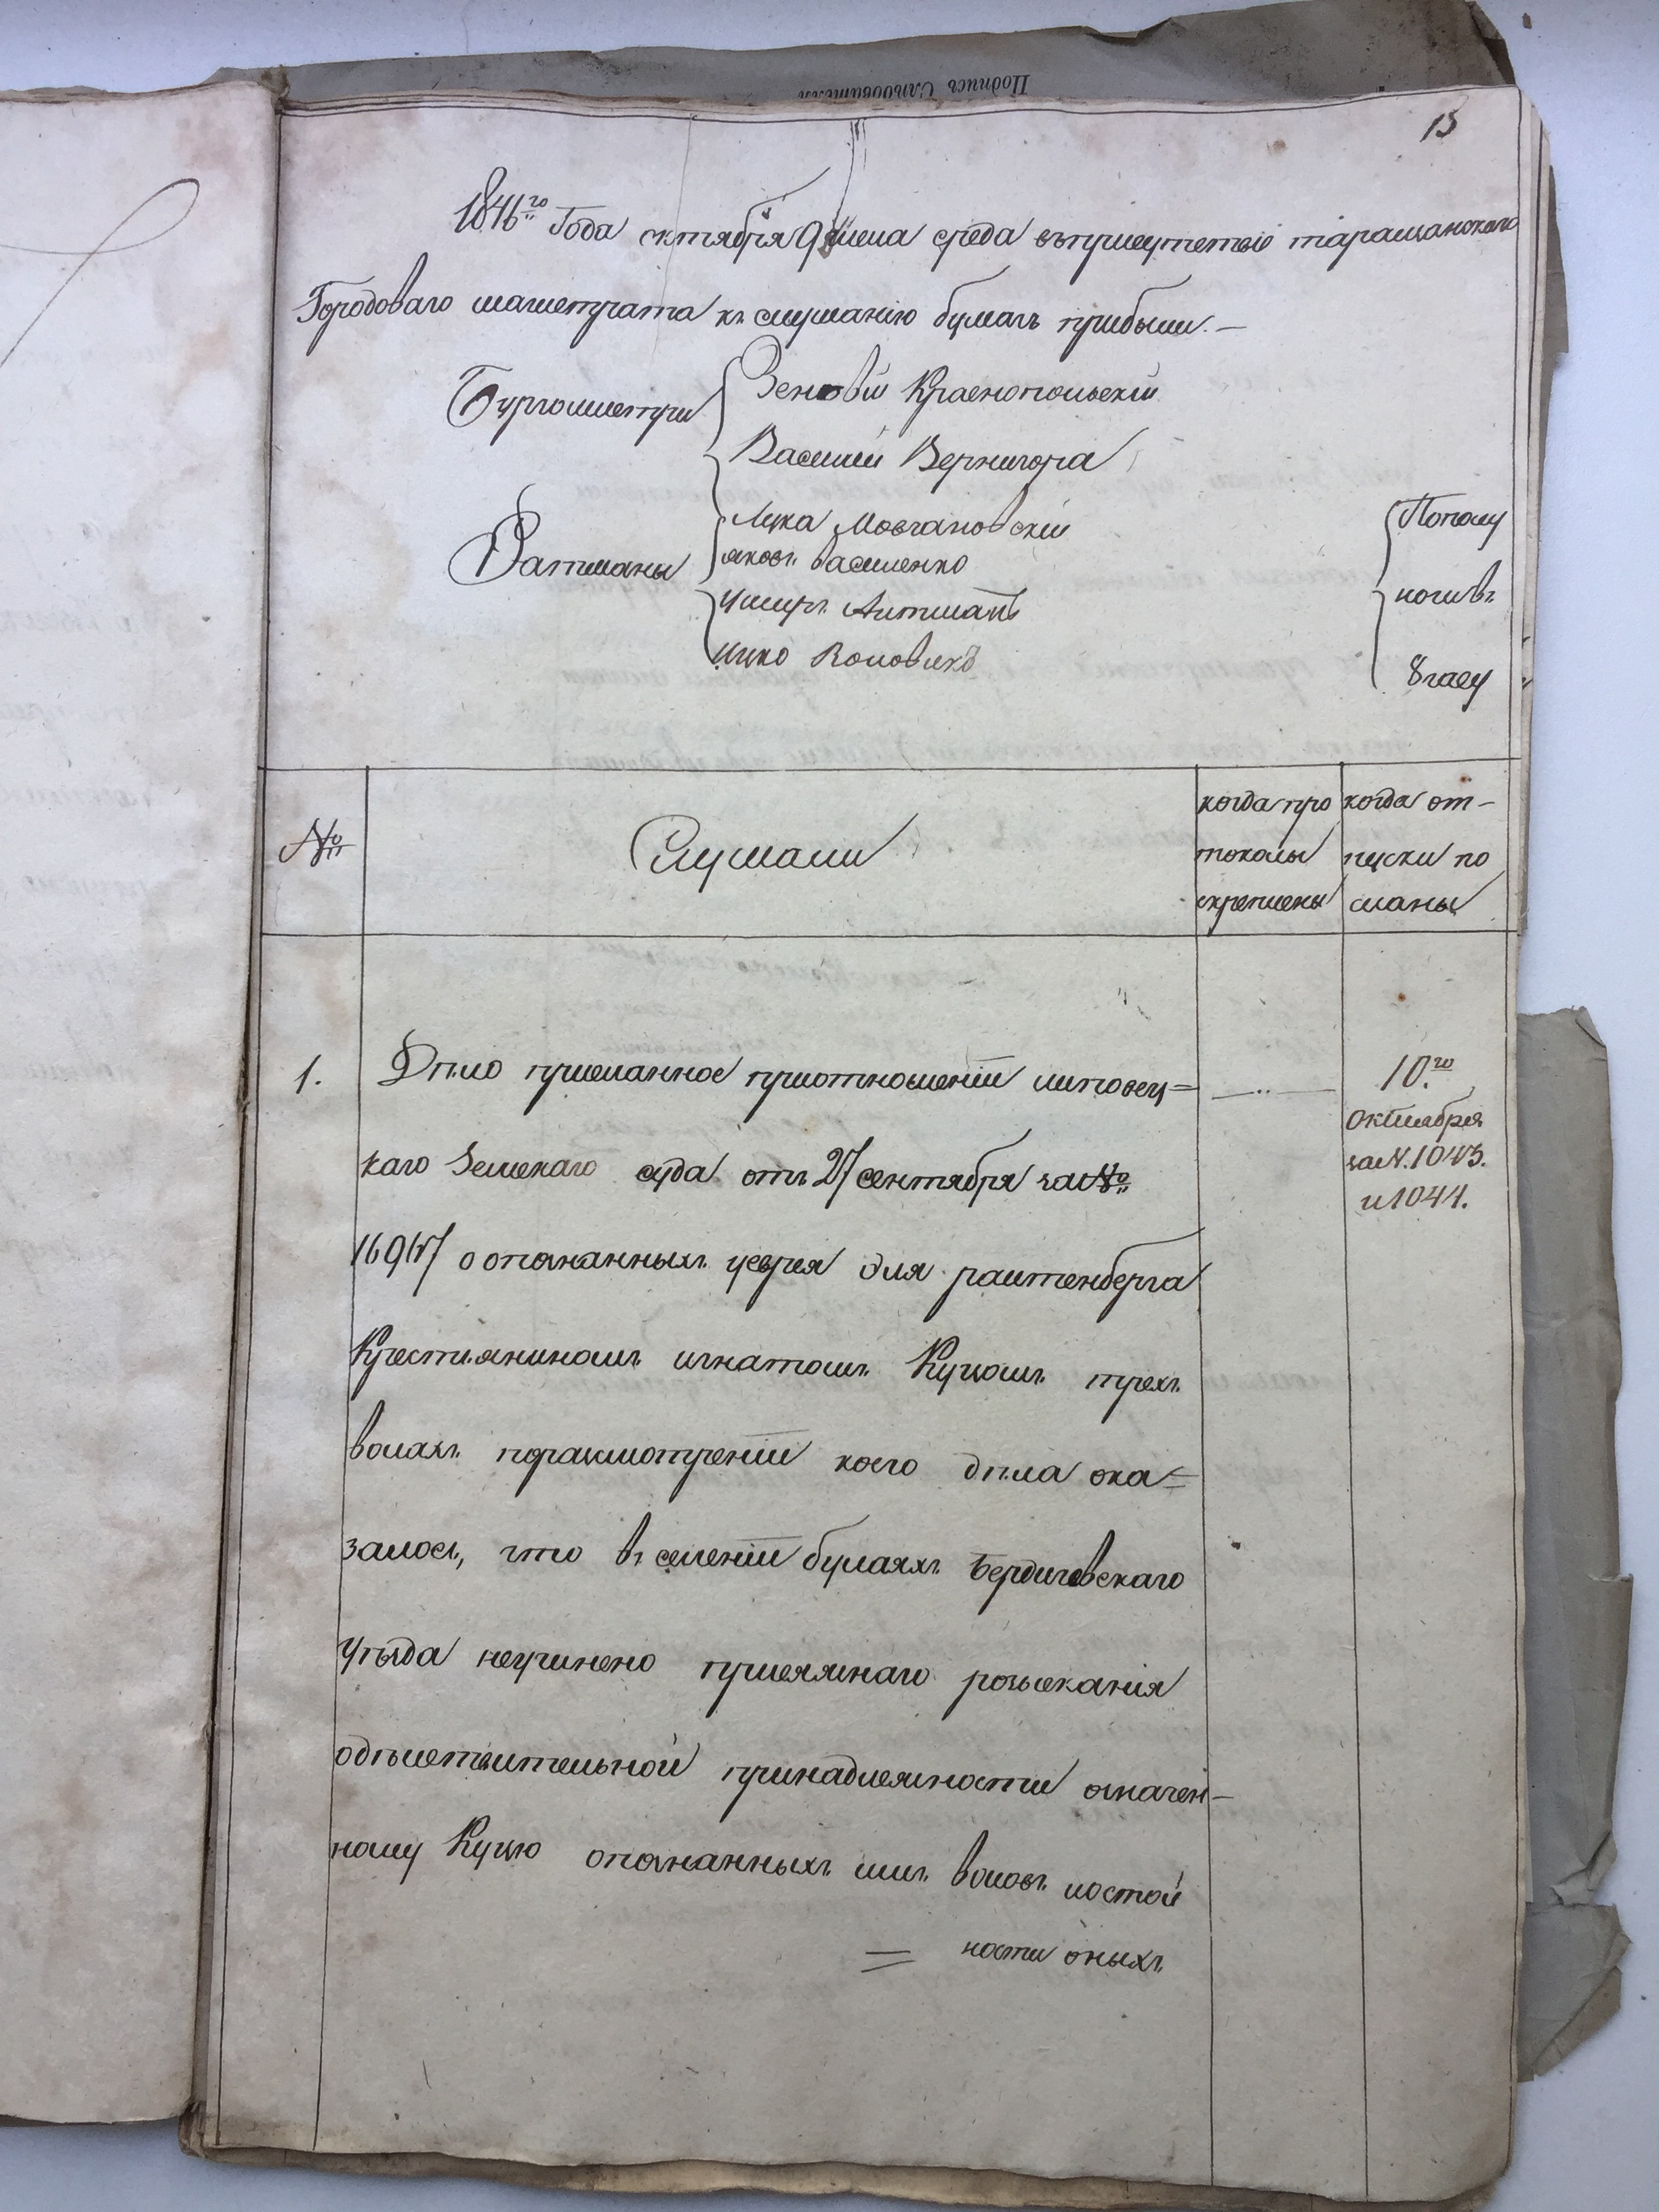 Подпись Слѣдователя
15
1846го Года октября 9 числа среда въприсутствіе таращанскаго
Городоваго магистрата къ слушанію бумагъ прибыли. —
Бургомистры
Зеновій Краснопольскій
Василій Вернигора
Ратманы
Лука Мовчановскій
яковъ василенко
Ицко Воловикъ
Пополу
ночивъ
8 часу
№
Слушали
когда про
токолы
скреплены
когда от-
пуски по
сланы
1.
Дѣло присланное приотношеніи липовец=
каго Земскаго суда отъ 27 сентября за№
16967 о опознанныхъ уеврея для раитенберга
Крестьяниномъ игнатомъ Куцомъ трехъ
волахъ поразсмотреніи коего дѣла ока=
залось, что въ селеніи бумаяхъ Бердичевскаго
уѣзда неучинено присяжнаго розысканія
одѣйствительной принадлежности означен-
ному Куцю опознанныхъ имъ воловъ истой
= ности оныхъ
10го
Октября
за N. 1043.
и 1044.